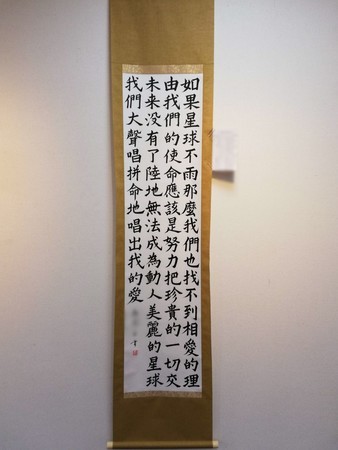 如果星球不雨那麼我們也找不到相愛的理
由我們的使命應該是努力把珍貴的一切交
未来没有了陸地無法成為動人美麗的星球
我們大聲唱拼命地唱出我的愛